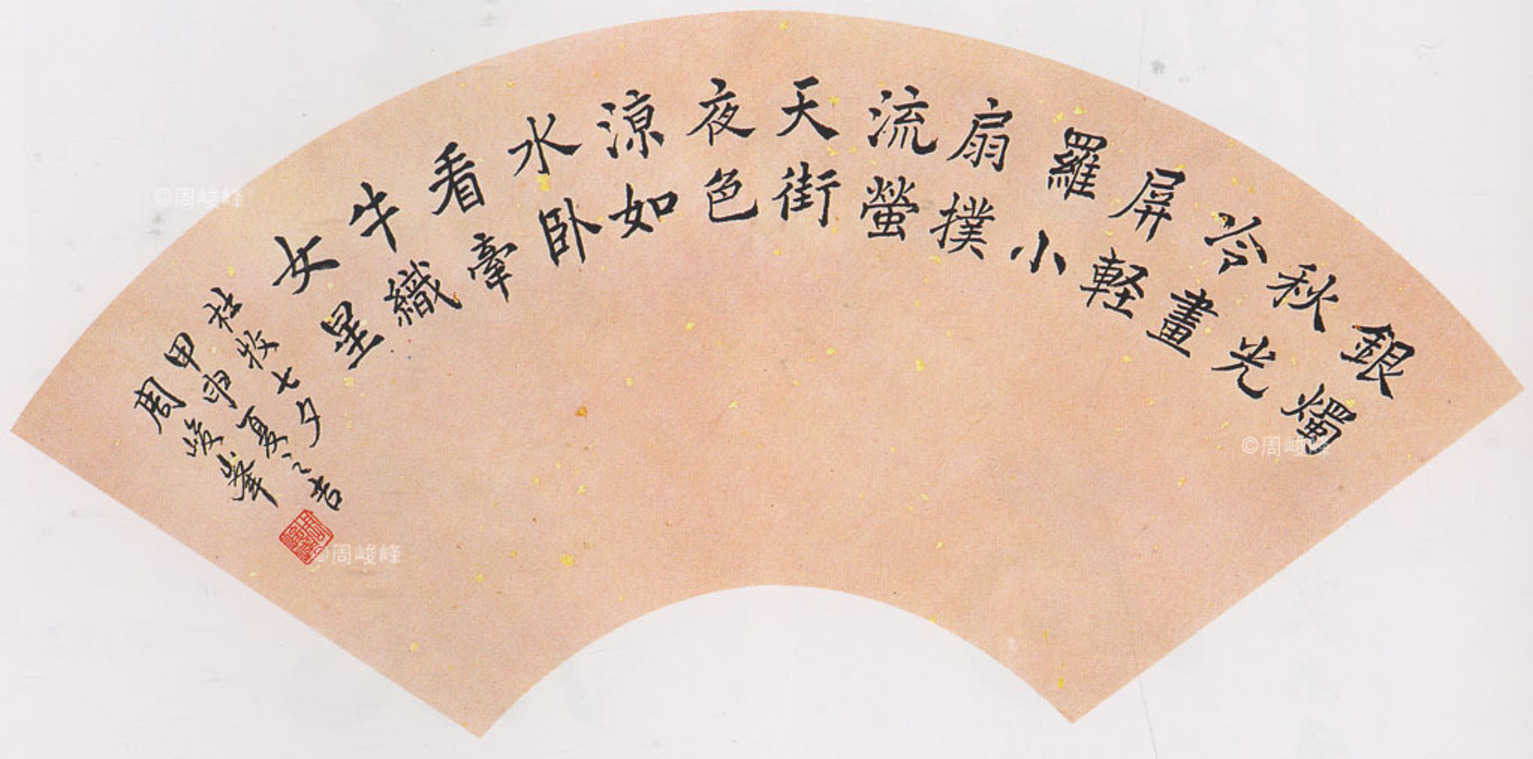 銀燭
秋光
冷畫
屏軽
羅小
扇撲
流螢
天街
夜色
涼如
水臥
看牽
牛織
女星
杜牧七夕
甲申夏之吉
周峻峯
©周峻峰
©周峻峰
©周峻峰